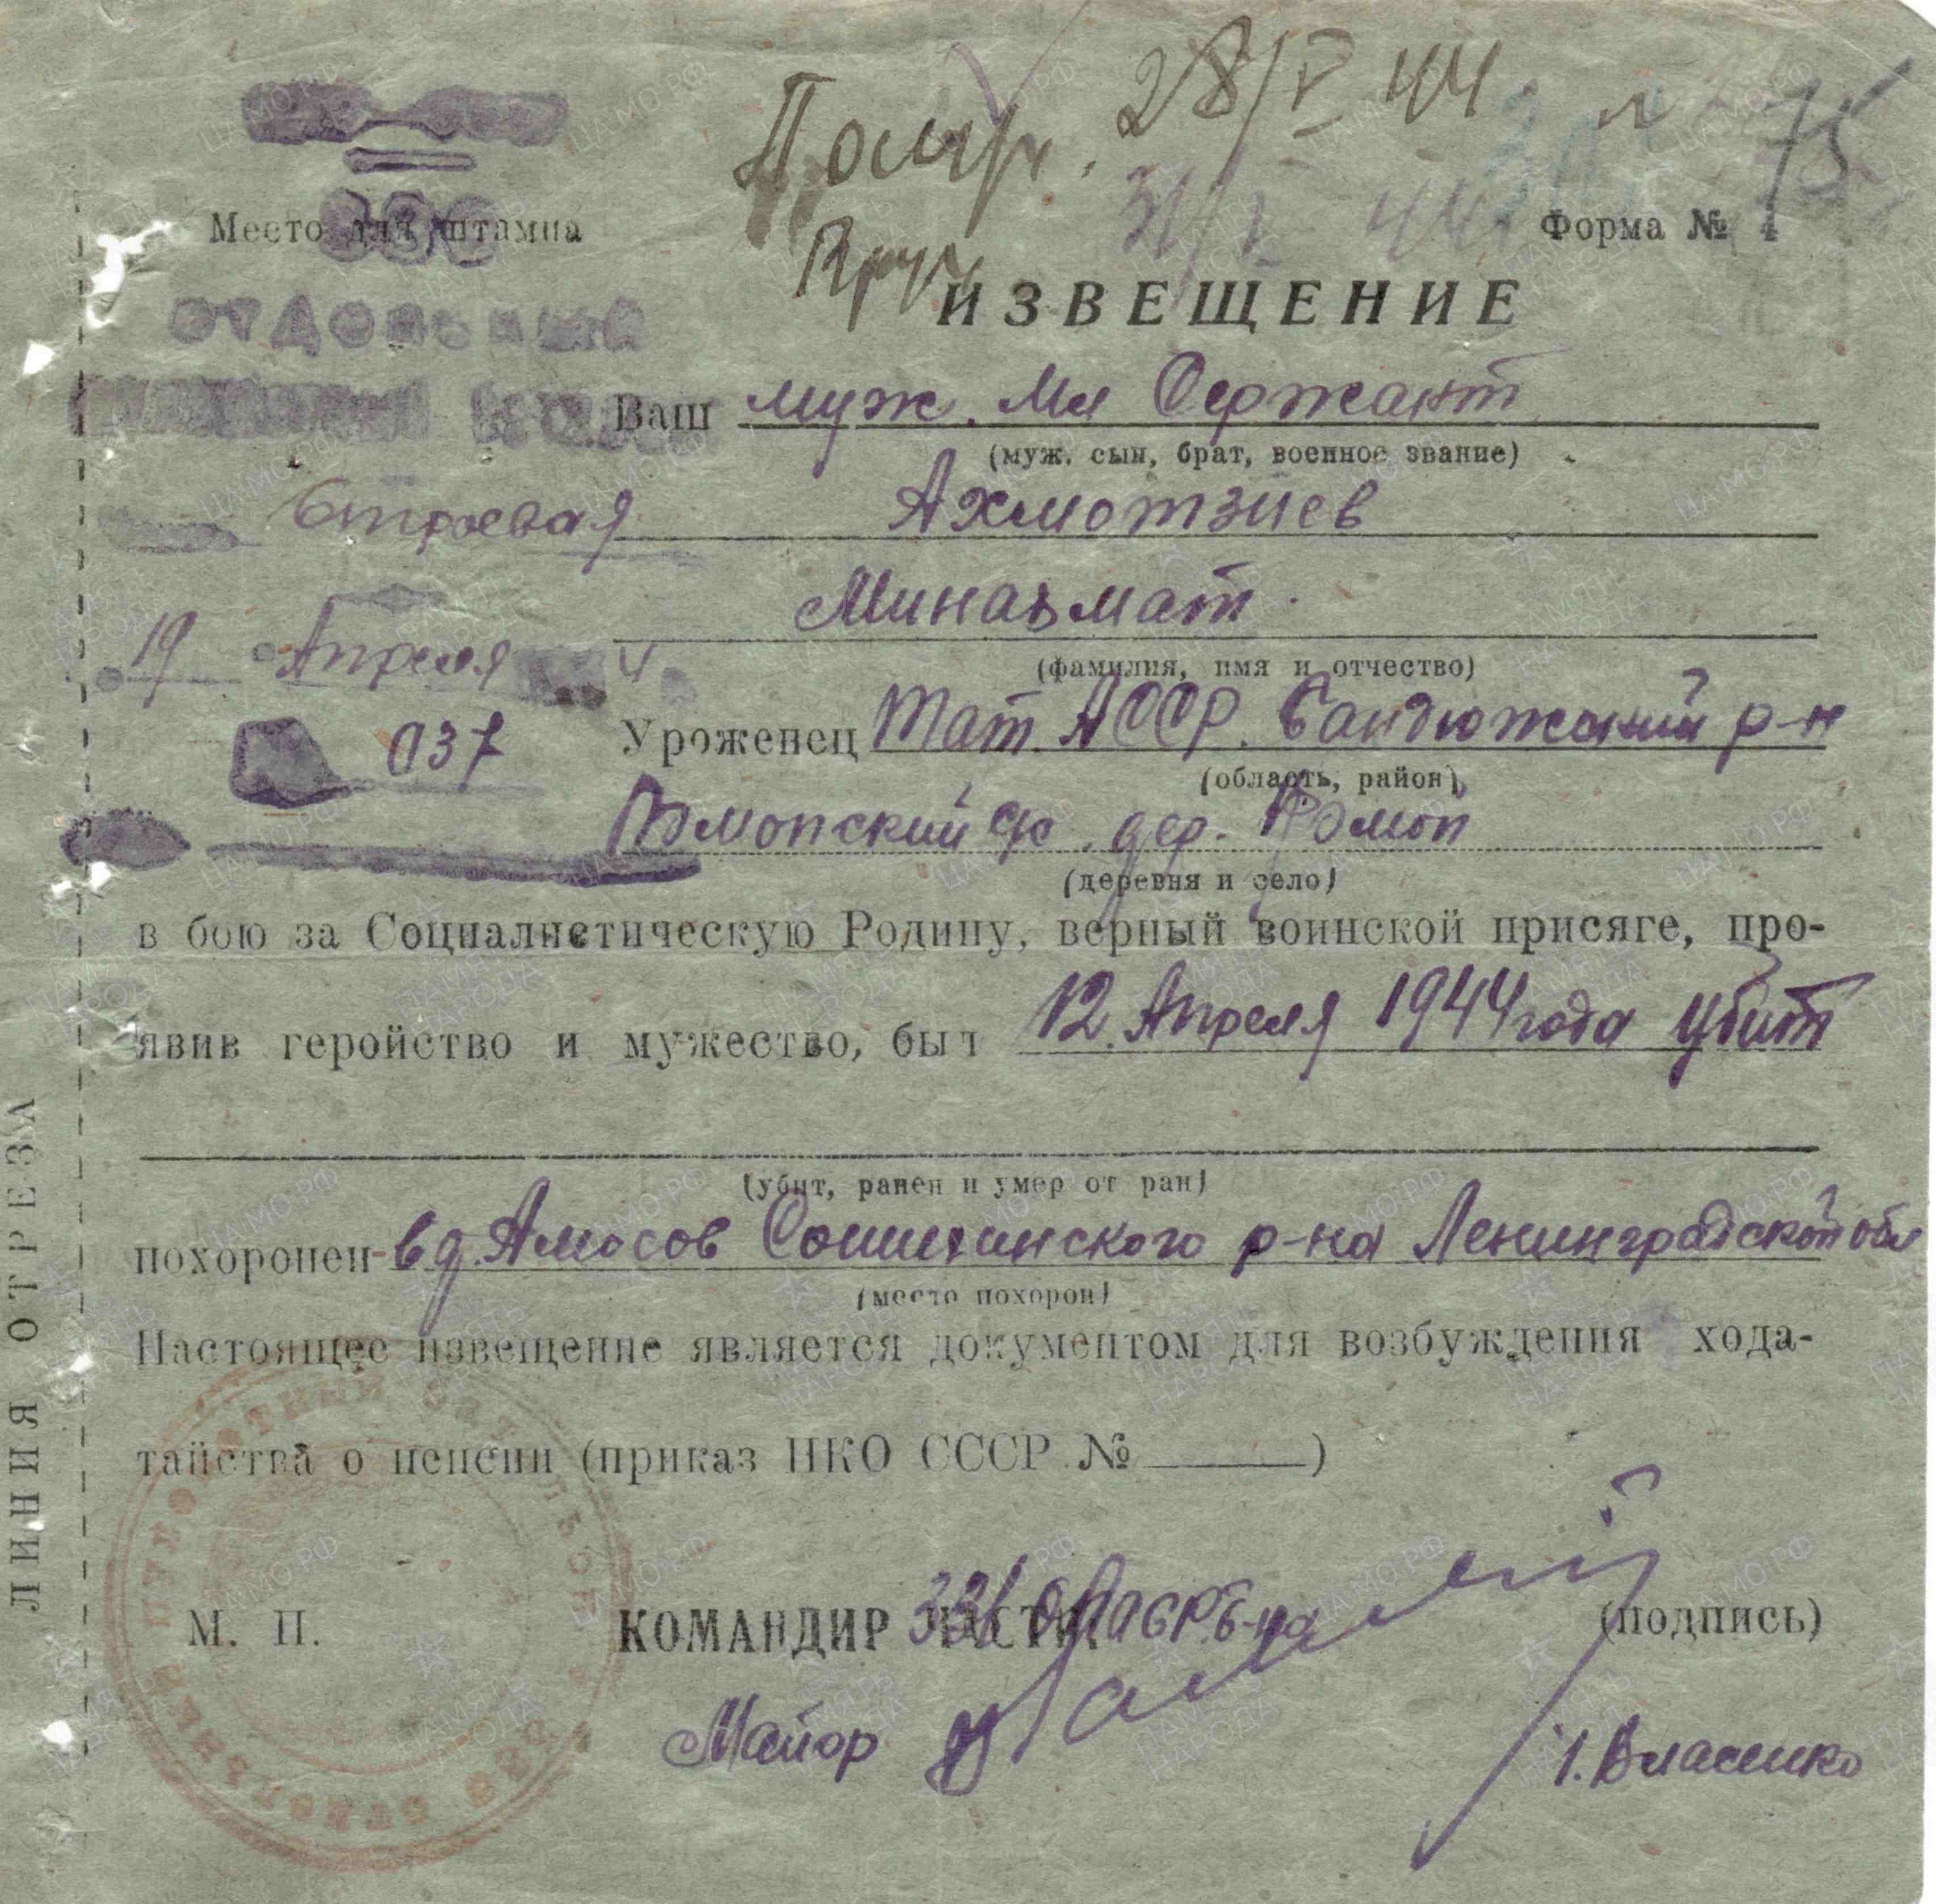 28/V 44
75
31/V 44
Место для штампа
Форма № 4
ИЗВЕЩЕНИЕ
ОТДЕЛЬНЫЙ
Ваш муж. Мл Сержант
(муж. сын, брат, военное звание)
Строевая
Ахмотзиев
Минаъмат
19 Апреля 4
(фамилия, имя и отчество)
037
Уроженец Тат. АССР. Бандюжский р-н
(область, район)
дер.
(деревня и село)
в бою за Социалистическую Родину, верный воинской присяге, про-
явив геройство и мужество, был 12. Апреля 1944 года убит
(убит, ранен и умер от ран)
похоронен в д. Амосов Сошихинского р-на Ленинградской обл
(место похорон)
Настоящее извещение является документом для возбуждения хода-
тайства о пенсии (приказ НКО СССР № )
М. П.
КОМАНДИР ЧАСТИ
(подпись)
Майор
Власенко
ЛИНИЯ ОТРЕЗА